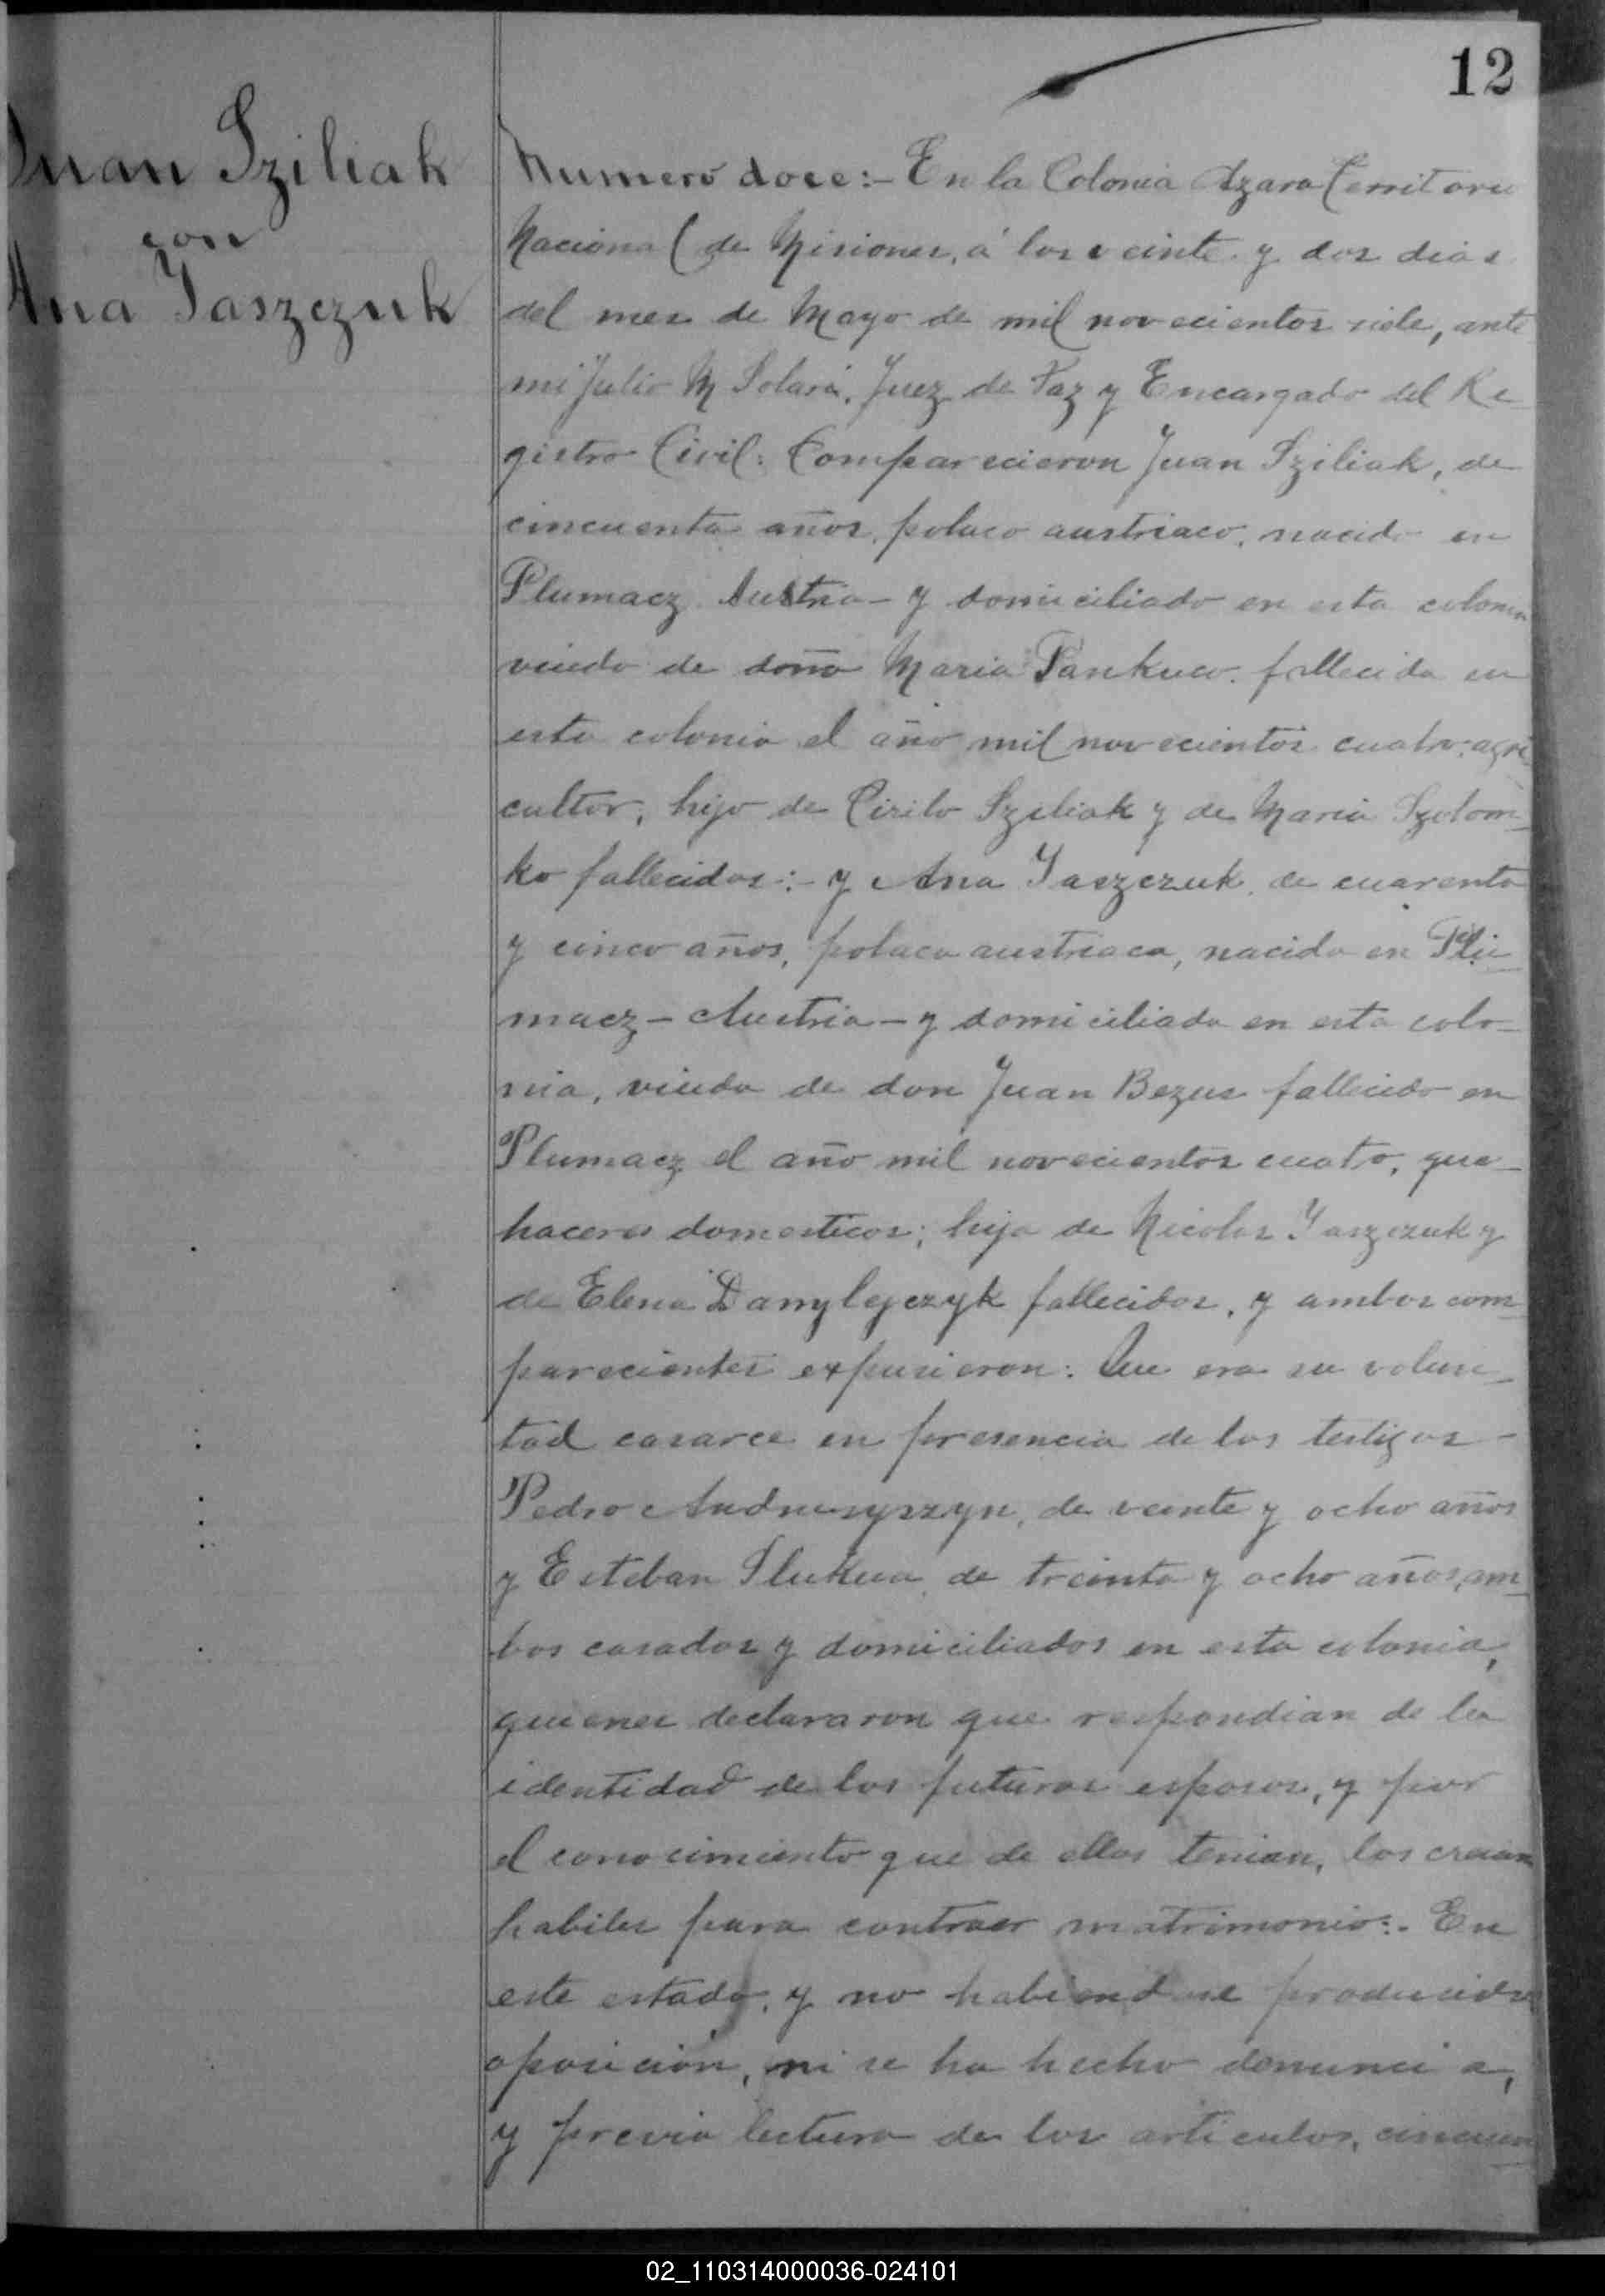 12
Juan Sziliak
con
Ana Jaszczuk
Numero doce:- En la Colonia Azara Territorio
Nacional de Misiones, á los veinte y dos dias
del mes de Mayo de mil novecientos siete, ante
mi Julio M Solari, Juez de Paz y Encargado del Re-
gistro Civil: Comparecieron Juan Sziliak, de
cincuenta años, polaco austriaco, nacido en
Plumacz Austria - y domiciliado en esta colonia
viudo de doña Maria Pankuw. fallecida en
esta colonia el año mil novecientos cuatro, agri
cultor, hijo de Cirilo Sziliak y de Maria Szolom-
ko fallecidos:- y Ana Jaszczuk, de cuarenta
y cinco años, polaca austriaca, nacida en Plu-
macz - Austria - y domiciliada en esta colo-
nia, viuda de don Juan Bezus fallecido en
Plumacz el año mil novecientos cuatro, que-
haceres domesticos; hija de Nicolas Jaszczuk y
de Elena Danylejczyk fallecidos, y ambos com-
parecientes expusieron: Que era su volun-
tad casarce en presencia de los testigos -
Pedro de veinte y ocho años
y Esteban de treinta y ocho años, am-
bos casados y domiciliados en esta colonia,
quienes declararon que respondian de la
identidad de los futuros esposos, y por
el conocimiento que de ellos tenian, los creian
habiles para contraer matrimonio:. En
este estado, y no habiendose producido
oposición, ni se ha hecho denuncia,
y previa lectura de los articulos, cincuen
02_110314000036-024101